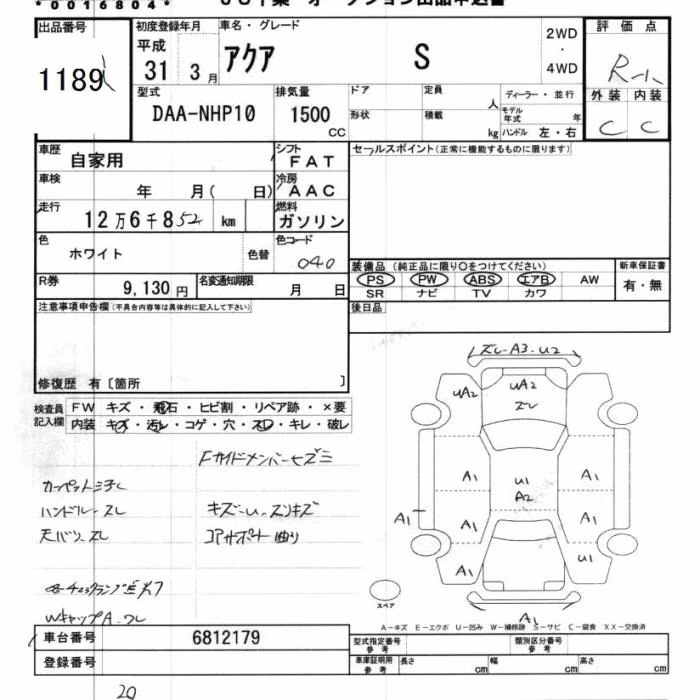 *0016804*
出品番号
1189
初度登録年月
平成
31 3月
車名・グレード
アクア S
2WD
・
4WD
評価点
R-1
外装 内装
C C
型式
DAA-NHP10
排気量
1500
CC
ドア
形状
定員
人
積載
kg
ディーラー・並行
モデル年式 年
ハンドル 左・右
車歴
自家用
シフト
FAT
車検
年 月( 日)
冷房
AAC
走行
12万6千852 km
燃料
ガソリン
色
ホワイト
色替
色コード
040
R券
9,130円
名変通知期限
月 日
セールスポイント(正常に機能するものに限ります)
装備品(純正品に限り○をつけてください)
PS PW ABS エアB AW
SR ナビ TV カワ
新車保証書
有・無
後日品
注意事項申告欄(不具合内容等は具体的に記入して下さい)
修復歴 有〔箇所 〕
検査員記入欄
FW キズ・飛石・ヒビ割・リペア跡・×要
内装 キズ・汚レ・コゲ・穴・スレ・キレ・破レ
Fサイドメンバーヒズミ
ハンドルースレ
キズ-U-スリキズ
コアサポート曲り
WキャップA-ワレ
ズレ-A3-U2
UA2
UA2
ズレ
A1
U1
A2
A1
A1
A1
A1
A1
U1
A1
スペア
A-キズ E-エクボ U-凹み W-補修跡 S-サビ C-腐食 XX-交換済
車台番号
6812179
登録番号
型式指定番号
参考
類別区分番号
参考
車庫証明用
参考
長さ cm
幅 cm
高さ cm
20